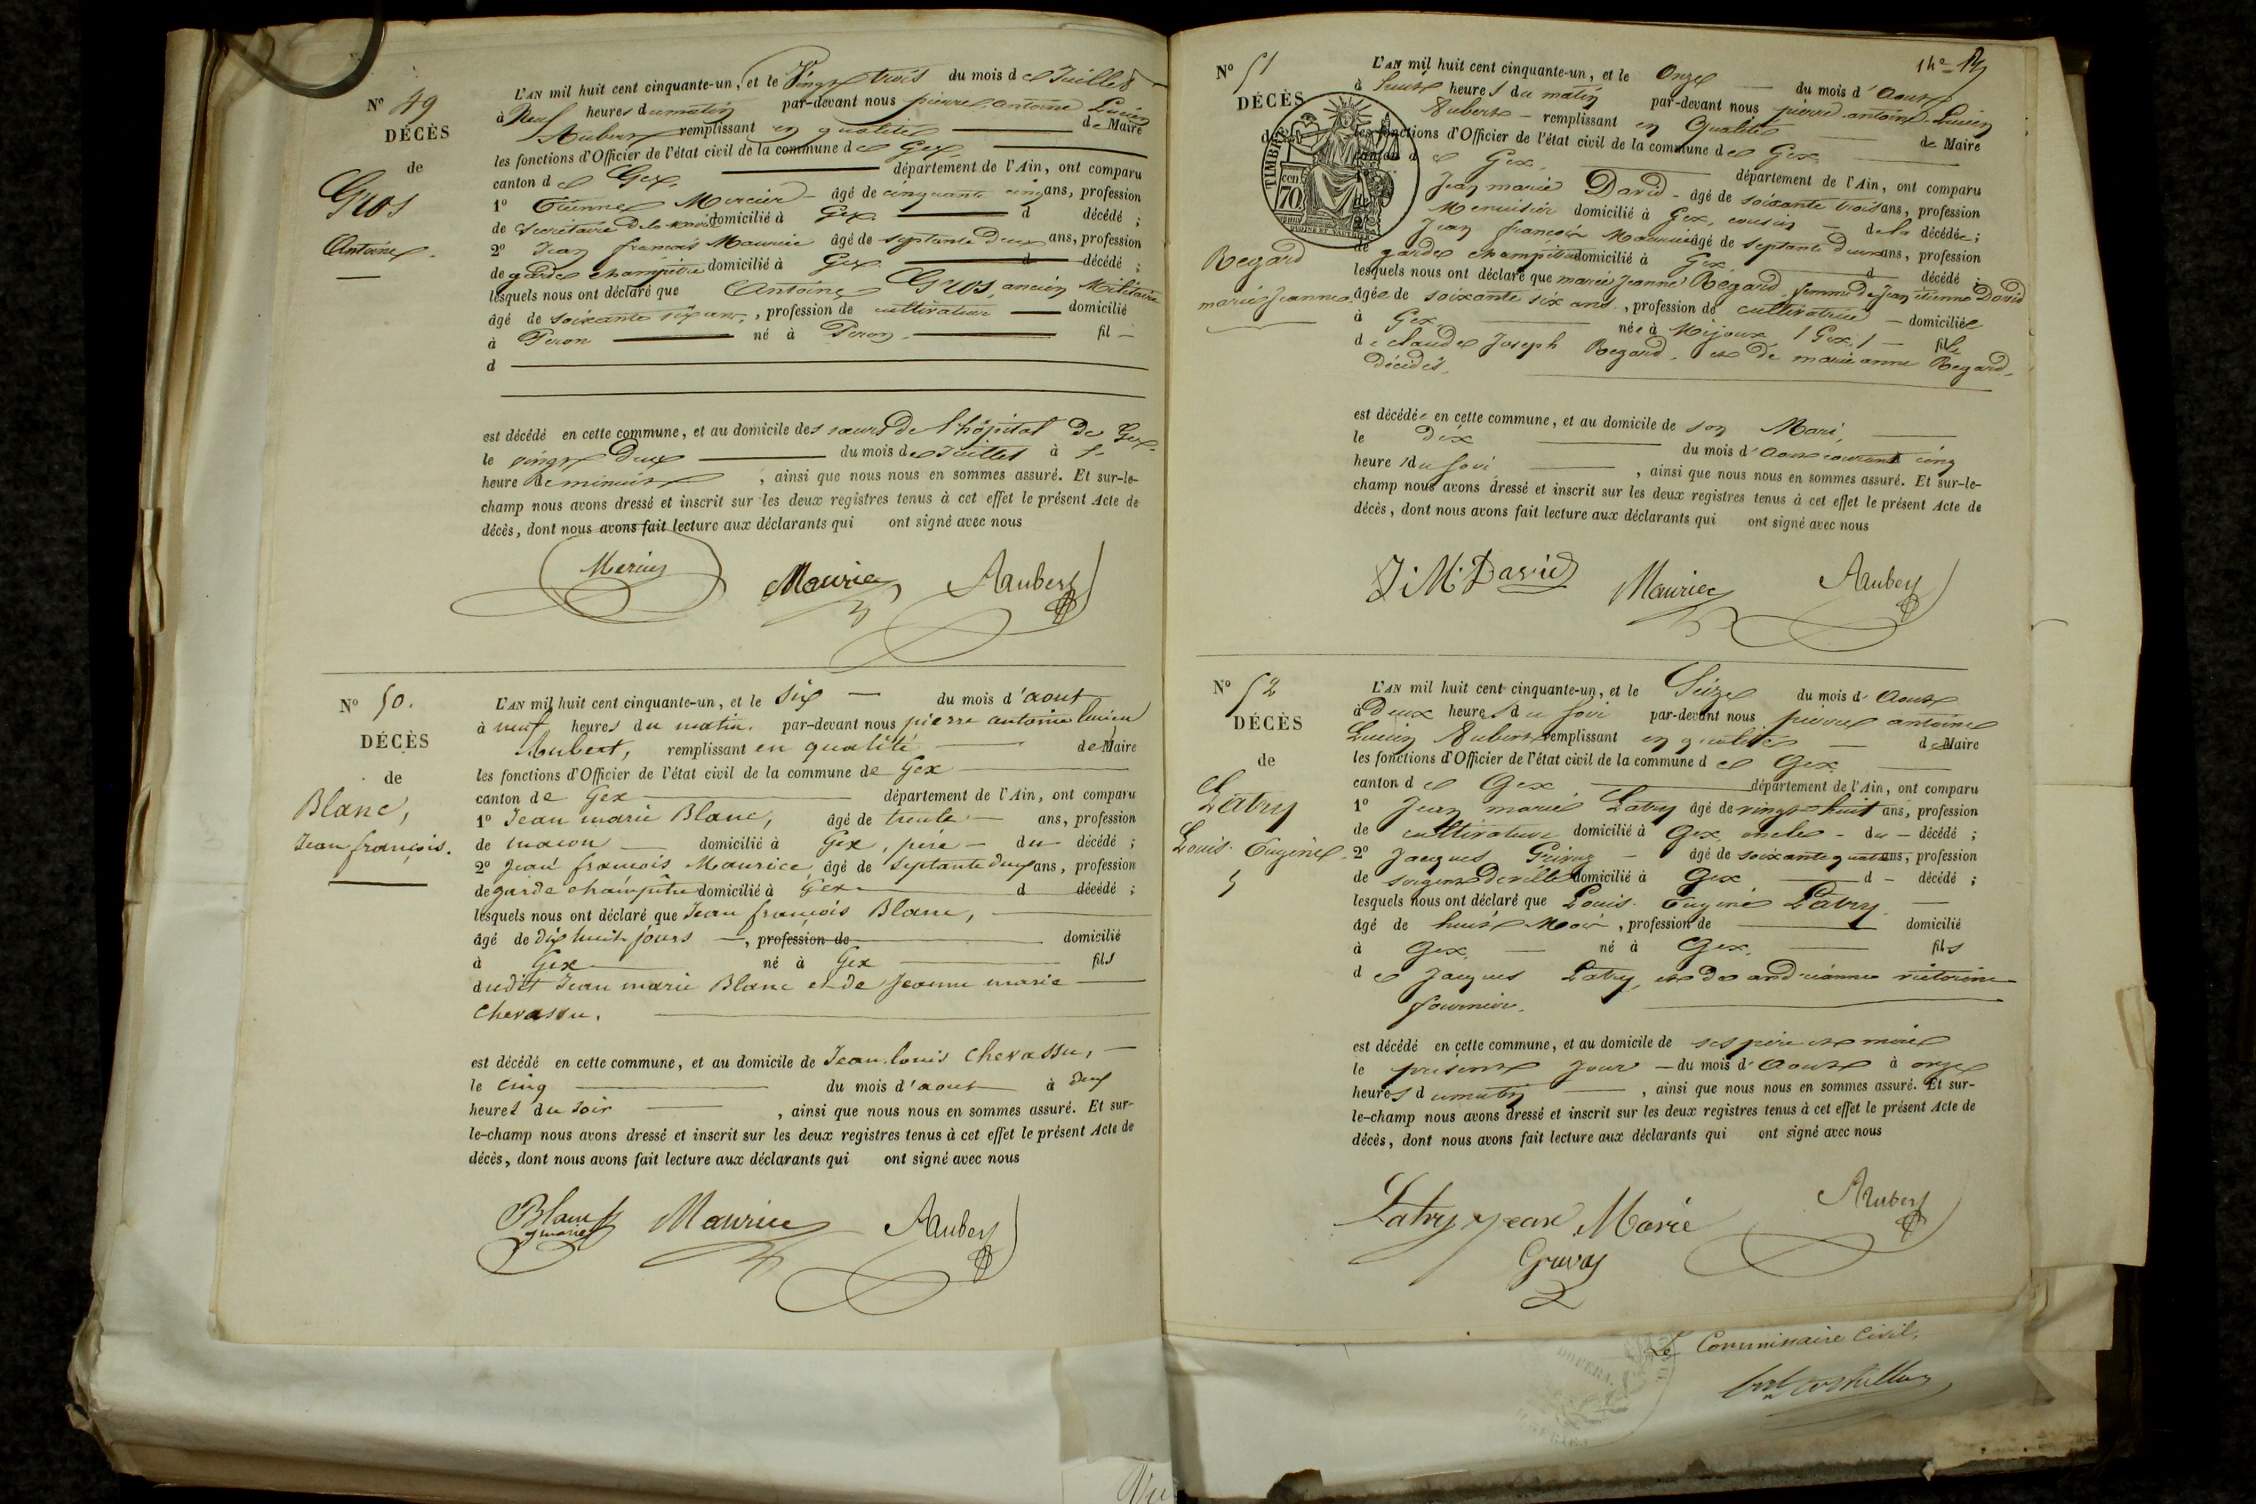 N° 49
DÉCÈS
de
Gros
Antoine.
L'AN mil huit cent cinquante-un, et le Vingt trois du mois de Juillet
à Neuf heures du matin par-devant nous pierre antoine Lucien
Aubert remplissant en qualité de Maire
les fonctions d'Officier de l'état civil de la commune de Gex
canton de Gex. département de l'Ain, ont comparu
1° Etienne Mercier - âgé de cinquante cinq ans, profession
de Secrétaire de la mairie domicilié à Gex d décédé ;
2° Jean françois Maurice âgé de septante deux ans, profession
de garde champêtre domicilié à Gex d décédé ;
lesquels nous ont déclaré que Antoine Gros, ancien Militaire
âgé de soixante six ans, , profession de cultivateur domicilié
à Peron né à Peron. fil
d
est décédé en cette commune, et au domicile des sœurs de l'hôpital de Gex.
le vingt deux du mois de Juillet à
heure de minuit , ainsi que nous nous en sommes assuré. Et sur-le-
champ nous avons dressé et inscrit sur les deux registres tenus à cet effet le présent Acte de
décès, dont nous avons fait lecture aux déclarants qui ont signé avec nous
Mercier Maurice Aubert
N° 50.
DÉCÈS
de
Blanc,
Jean françois.
L'AN mil huit cent cinquante-un, et le six du mois d'aout
à neuf heures du matin. par-devant nous pierre antoine lucien
Aubert, remplissant en qualité de Maire
les fonctions d'Officier de l'état civil de la commune de Gex
canton de Gex département de l'Ain, ont comparu
1° Jean marie Blanc, âgé de trente ans, profession
de macon domicilié à Gex, père - du décédé ;
2° Jean françois Maurice, âgé de septante deux ans, profession
de garde champêtre domicilié à Gex d décédé ;
lesquels nous ont déclaré que Jean françois Blanc,
âgé de dix huit jours , profession de domicilié
à Gex né à Gex fils
dudit Jean marie Blanc et de Jeanne marie
Chevassu.
est décédé en cette commune, et au domicile de Jean-louis Chevassu,
le cinq du mois d'aout à deux
heures du soir , ainsi que nous nous en sommes assuré. Et sur-
le-champ nous avons dressé et inscrit sur les deux registres tenus à cet effet le présent Acte de
décès, dont nous avons fait lecture aux déclarants qui ont signé avec nous
Blanc
j marie Maurice Aubert
N° 51
DÉCÈS
de
TIMBRE
CEN
70
Regard
marie Jeanne
L'AN mil huit cent cinquante-un, et le Onze du mois d'Aout
à huit heures du matin par-devant nous pierre antoine Lucien
Aubert - remplissant en Qualité de Maire
les fonctions d'Officier de l'état civil de la commune de Gex
canton de Gex. département de l'Ain, ont comparu
Jean marie David - âgé de soixante trois ans, profession
Menuisier domicilié à Gex, cousin - de la décédée ;
2° Jean françois Maurice âgé de septante deux ans, profession
de garde champêtre domicilié à Gex d décédé ;
lesquels nous ont déclaré que marie Jeanne Regard, femme de Jean étienne David
âgée de soixante six ans , profession de cultivatrice - domiciliée
à Gex née à Mijoux / Gex / - fille
de claude Joseph Regard, et de marie anne Regard,
décédés.
est décédée en cette commune, et au domicile de son Mari,
le dix du mois d'Aout courant cinq
heures du soir , ainsi que nous nous en sommes assuré. Et sur-le-
champ nous avons dressé et inscrit sur les deux registres tenus à cet effet le présent Acte de
décès, dont nous avons fait lecture aux déclarants qui ont signé avec nous
J: M: David Maurice Aubert
N° 52
DÉCÈS
de
Latry
Louis Eugène
L'AN mil huit cent cinquante-un, et le Seize du mois d'Aout
à deux heures du soir par-devant nous pierre antoine
Lucien Aubert remplissant en qualité de Maire
les fonctions d'Officier de l'état civil de la commune de Gex
canton de Gex département de l'Ain, ont comparu
1° Jean marie Latry âgé de vingt huit ans, profession
de cultivateur domicilié à Gex, oncle - du - décédé ;
2° Jacques - âgé de soixante quatre ans, profession
de sergent de ville domicilié à Gex d - décédé ;
lesquels nous ont déclaré que Louis Eugène Latry
âgé de huit Mois , profession de domicilié
à Gex, né à Gex. fils
de Jacques Latry, et de andréanne victorine
fournier.
est décédé en cette commune, et au domicile de ses père et mère
le présent Jour - du mois d'Aout à onze
heures du matin , ainsi que nous nous en sommes assuré. Et sur-
le-champ nous avons dressé et inscrit sur les deux registres tenus à cet effet le présent Acte de
décès, dont nous avons fait lecture aux déclarants qui ont signé avec nous
Latry jean Marie Aubert
Le Commissaire Civil,